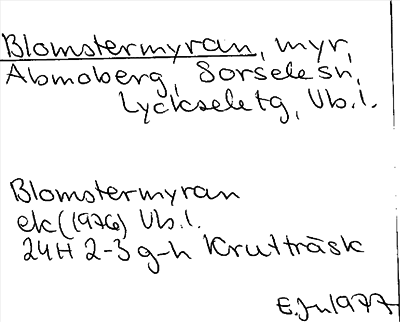 Blomstermyran, myr,
Abmoberg, Sorsele sn,
Lycksele tg, Vb.l.
Blomstermyran
ek (1976) Vb.l.
24H 2-3 g-h Krutträsk
E.Ju 1977